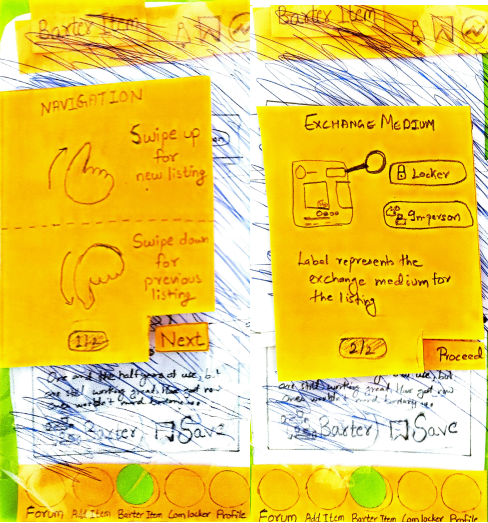 Barter Item
NAVIGATION
Swipe up
for
new listing
Swipe down
for
previous
listing
1/2
Next
One and the half years of use, but
are still writing great. Have got new
Ones wouldn't mind
Barter
Save
Forum Add Item Barter Item Com locker Profile
Barter Item
EXCHANGE MEDIUM
Locker
Inperson
Label represents the
exchange medium for
the listing
2/2
Proceed
use, but
are still writing great. Have got new
Ones wouldn't mind
Barter
Save
Forum Add Item Barter Item Com locker Profile